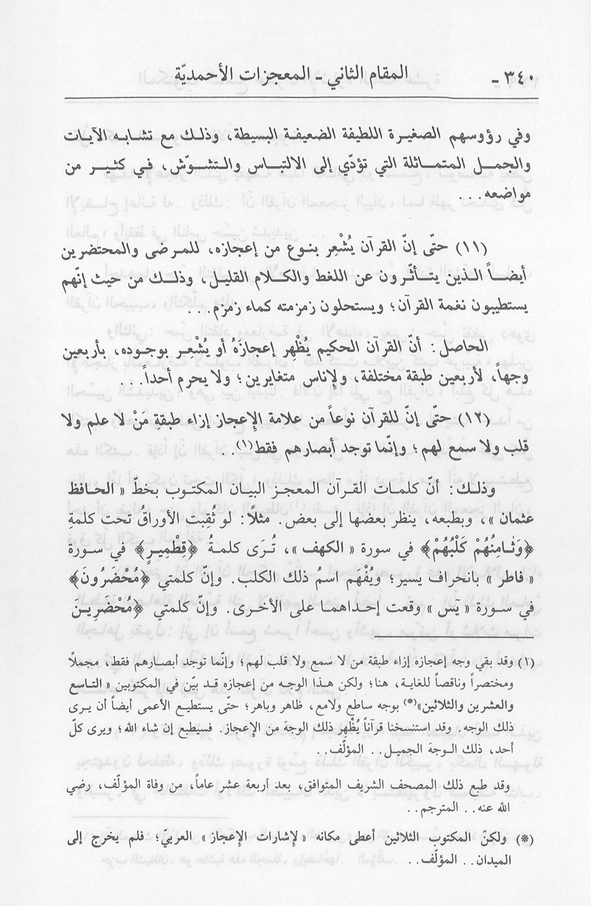 ٣٤٠ - المقام الثاني - المعجزات الأحمديّة
وفي رؤوسهم الصغيرة اللطيفة الضعيفة البسيطة، وذلك مع تشابه الآيات
والجمل المتماثلة التي تؤدّي إلى الالتباس والتشوّش، في كثير من
مواضعه...
(١١) حتّى إنّ القرآن يُشْعِر بنوع من إعجازه، للمرضى والمحتضرين
أيضاً الذين يتأثّرون عن اللغط والكلام القليل، وذلك من حيث إنّهم
يستطيبون نغمة القرآن؛ ويستحلون زمزمته كماء زمزم...
الحاصل: أنّ القرآن الحكيم يُظْهِر إعجازَهُ أو يُشْعِر بوجوده، بأربعين
وجهاً، لأربعين طبقة مختلفة، ولإناس متغايرين؛ ولا يحرم أحداً...
(١٢) حتّى إنّ للقرآن نوعاً من علامة الإعجاز إزاء طبقةِ مَنْ لا علم ولا
قلب ولا سمع لهم؛ وإنّما توجد أبصارهم فقط(١)..
وذلك: أنّ كلمات القرآن المعجز البيان المكتوب بخطّ «الحافظ
عثمان»، وبطبعه، ينظر بعضها إلى بعض. مثلاً: لو ثُقِبت الأوراقُ تحت كلمةِ
﴿وَثَامِنُهُمْ كَلْبُهُمْ﴾ في سورة «الكهف»، تُرَى كلمةُ ﴿قِطْمِيرٍ﴾ في سورة
«فاطر» بانحراف يسير؛ ويُفْهَم اسمُ ذلك الكلب. وإنّ كلمتي ﴿مُحْضَرُونَ﴾
في سورة «يٓس» وقعت إحداهما على الأخرى. وإنّ كلمتي ﴿مُحْضَرِينَ
(١) وقد بقي وجه إعجازه إزاء طبقة من لا سمع ولا قلب لهم؛ وإنّما توجد أبصارهم فقط، مجملاً
ومختصراً وناقصاً للغاية، هنا؛ ولكن هذا الوجه من إعجازه قد بيّن في المكتوبين «التاسع
والعشرين والثلاثين»(*) بوجه ساطع ولامع، ظاهر وباهر؛ حتّى يستطيع الأعمى أيضاً أن يرى
ذلك الوجه. وقد استنسخنا قرآناً يُظْهِر ذلك الوجهَ من الإعجاز. فسيطبع إن شاء الله؛ ويرى كلّ
أحد، ذلك الوجهَ الجميل.. المؤلّف..
وقد طبع ذلك المصحف الشريف المتوافق، بعد أربعة عشر عاماً، من وفاة المؤلّف، رضي
الله عنه.. المترجم..
(*) ولكنّ المكتوب الثلاثين أعطى مكانه «لإشارات الإعجاز» العربيّ؛ فلم يخرج إلى
الميدان.. المؤلّف..